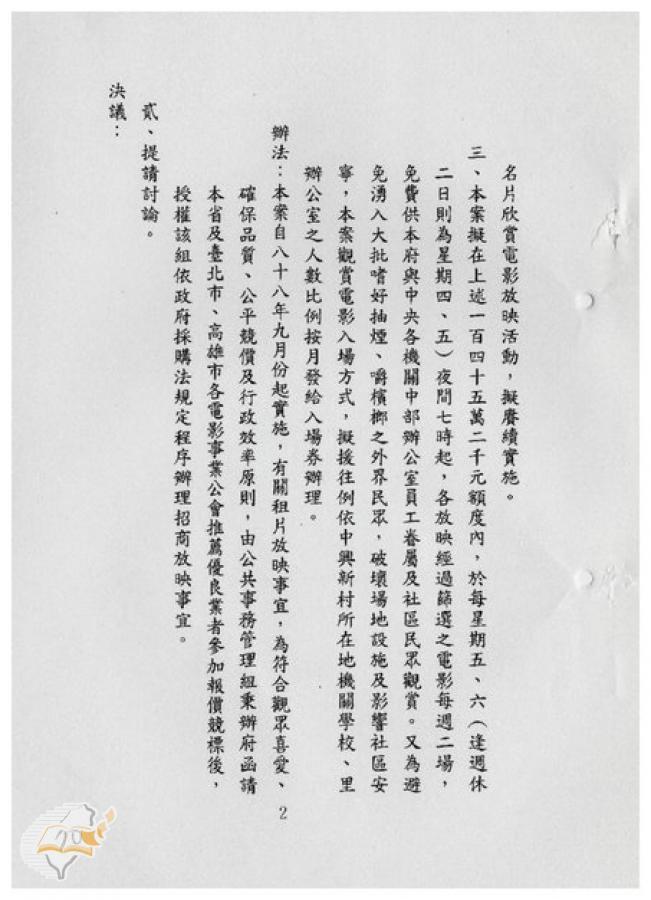 名片欣賞電影放映活動，擬賡續實施。
三、本案擬在上述一百四十五萬二千元額度內，於每星期五、六（逢週休
二日則為星期四、五）夜間七時起，各放映經過篩選之電影每週二場，
免費供本府與中央各機關中部辦公室員工眷屬及社區民眾觀賞。又為避
免湧入大批嗜好抽煙、嚼檳榔之外界民眾，破壞場地設施及影響社區安
寧，本案觀賞電影入場方式，擬援往例依中興新村所在地機關學校、里
辦公室之人數比例按月發給入場券辦理。
辦法：本案自八十八年九月份起實施，有關租片放映事宜，為符合觀眾喜愛、
確保品質、公平競價及行政效率原則，由公共事務管理組秉辦府函請
本省及臺北市、高雄市各電影事業公會推薦優良業者參加報價競標後，
授權該組依政府採購法規定程序辦理招商放映事宜。
貳、提請討論。
決議：
2